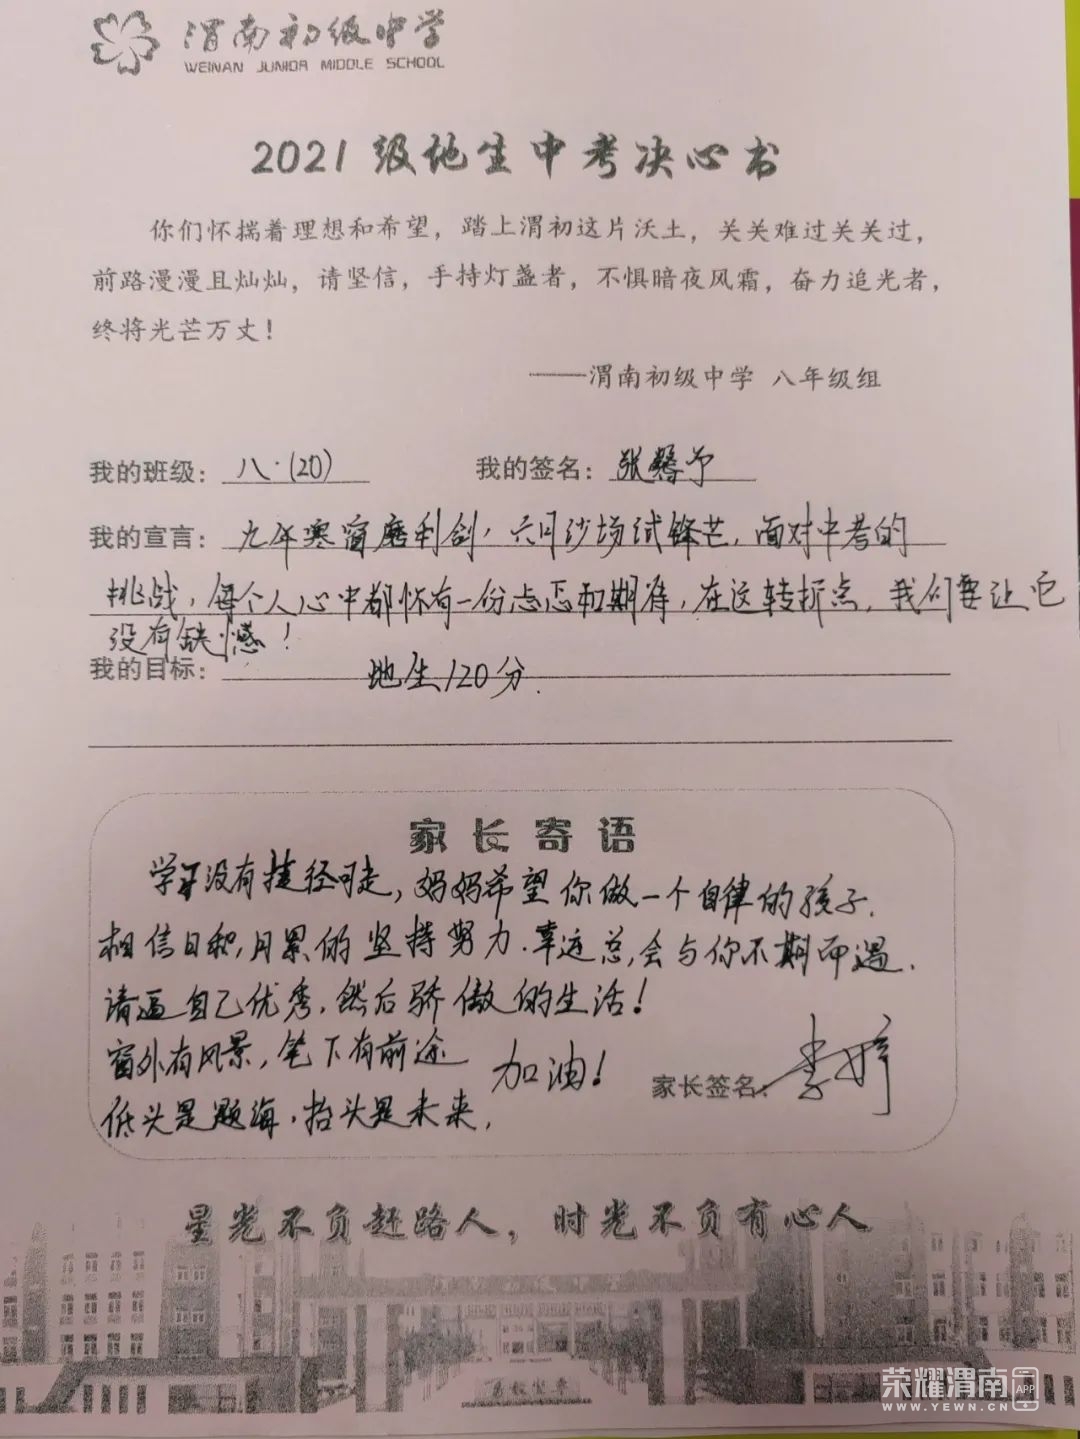 渭南初级中学
WEINAN JUNIOR MIDDLE SCHOOL
2021级地生中考决心书
你们怀揣着理想和希望，踏上渭初这片沃土，关关难过关关过，
前路漫漫且灿灿，请坚信，手持灯盏者，不惧暗夜风霜，奋力追光者，
终将光芒万丈！
——渭南初级中学 八年级组
我的班级：八·(20) 我的签名：张馨予
我的宣言：九年寒窗磨利剑，六月沙场试锋芒，面对中考的
挑战，每个人心中都怀有一份忐忑和期待，在这转折点，我们要让它
没有缺憾！
我的目标：地生120分.
家长寄语
学习没有捷径可走，妈妈希望你做一个自律的孩子.
相信日积月累的坚持努力.幸运总会与你不期而遇.
请逼自己优秀，然后骄傲的生活！
窗外有风景，笔下有前途
低头是题海，抬头是未来，
加油！
家长签名：李婷
星光不负赶路人，时光不负有心人
荣耀渭南 APP
WWW.YEWN.CN